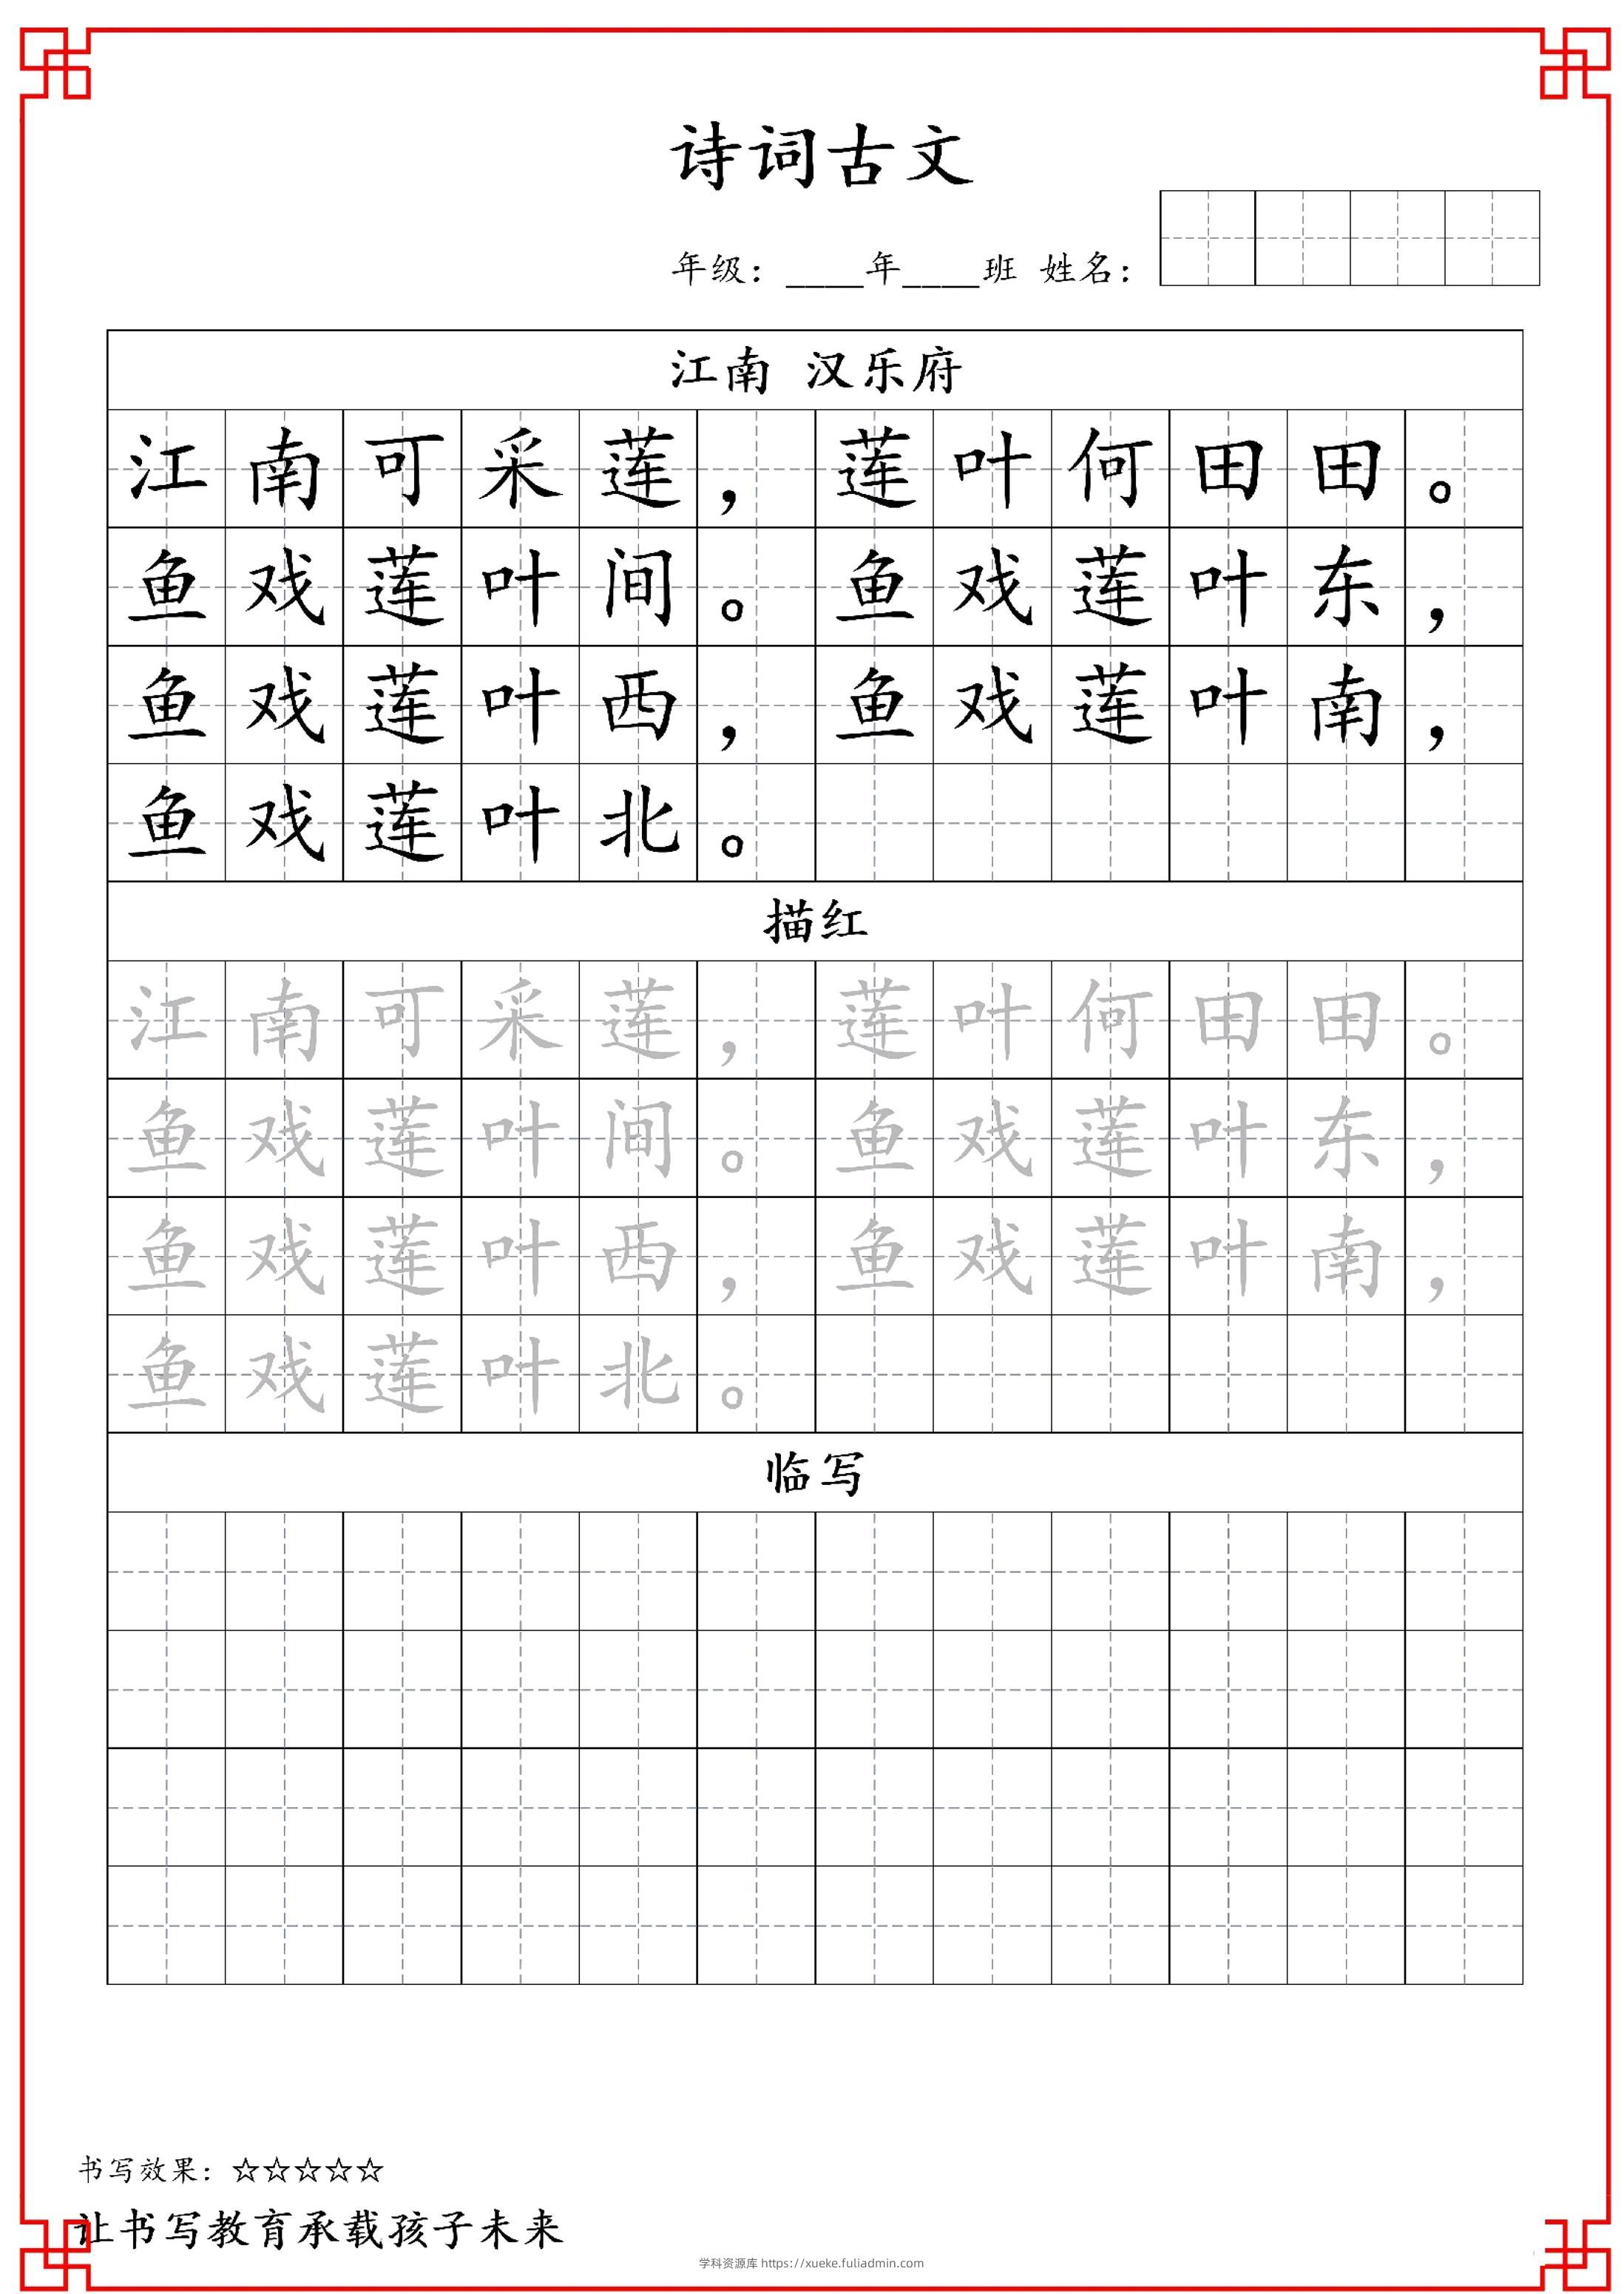 诗词古文
年级：____年____班 姓名：
江南 汉乐府
江南可采莲，莲叶何田田。
鱼戏莲叶间。鱼戏莲叶东，
鱼戏莲叶西，鱼戏莲叶南，
鱼戏莲叶北。
描红
江南可采莲，莲叶何田田。
鱼戏莲叶间。鱼戏莲叶东，
鱼戏莲叶西，鱼戏莲叶南，
鱼戏莲叶北。
临写
书写效果：☆☆☆☆☆
让书写教育承载孩子未来
学科资源库 https://xueke.fuliadmin.com